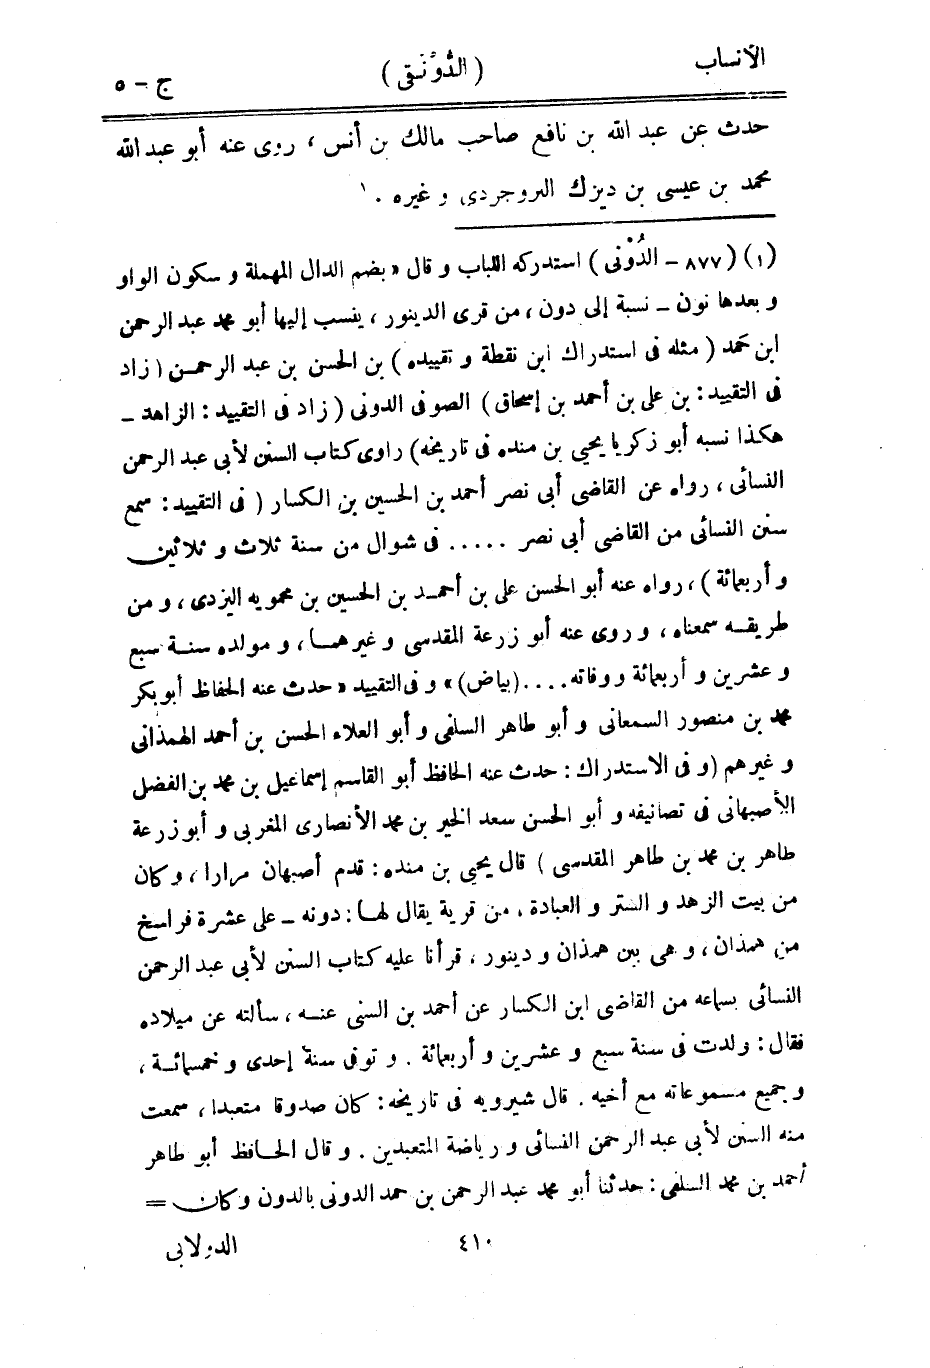 الأنساب (الدُّوْنَقى) ج - ٥
حدث عن عبد الله بن نافع صاحب مالك بن أنس ، روى عنه أبو عبد الله
محمد بن عيسى بن ديزك البروجردى و غيره . ١
(١) (٨٧٧ - الدُوْنى) استدركه اللباب و قال « بضم الدال المهملة و سكون الواو
و بعدها نون - نسبة إلى دون ، من قرى الدينور ، ينسب إليها أبو محمد عبد الرحمن
ابن حَمد ( مثله فى استدراك ابن نقطة و تقييده ) بن الحسن بن عبد الرحمن ( زاد
فى التقييد : بن على بن أحمد بن إسحاق ) الصوفى الدونى ( زاد فى التقييد : الزاهد -
هكذا نسبه أبو زكريا يحيى بن منده فى تاريخه ) راوى كتاب السنن لأبى عبد الرحمن
النسائى ، رواه عن القاضى أبى نصر أحمد بن الحسين بن الكسار ( فى التقييد : سمع
سنن النسائى من القاضى أبى نصر ..... فى شوال من سنة ثلاث و ثلاثين
و أربعمائة ) ، رواه عنه أبو الحسن على بن أحمد بن الحسين بن محمويه اليزدى ، و من
طريقه سمعناه ، و روى عنه أبو زرعة المقدسى و غيرهما ، و مولده سنة سبع
و عشرين و أربعمائة و وفاته .... (بياض) » و فى التقييد « حدث عنه الحفاظ أبو بكر
محمد بن منصور السمعانى و أبو طاهر السلفى و أبو العلاء الحسن بن أحمد الهمذانى
و غيرهم (و فى الاستدراك : حدث عنه الحافظ أبو القاسم إسماعيل بن محمد بن الفضل
الأصبهانى فى تصانيفه و أبو الحسن سعد الخير بن محمد الأنصارى المغربى و أبو زرعة
طاهر بن محمد بن طاهر المقدسى ) قال يحيى بن منده : قدم أصبهان مرارا ، و كان
من بيت الزهد و الستر و العبادة ، من قرية يقال لها : دونه - على عشرة فراسخ
من همذان ، و هى بين همذان و دينور ، قرأنا عليه كتاب السنن لأبى عبد الرحمن
النسائى بسماعه من القاضى ابن الكسار عن أحمد بن السنى عنه ، سألته عن ميلاده
فقال : ولدت فى سنة سبع و عشرين و أربعمائة . و توفى سنة إحدى و خمسمائة ،
و جميع مسموعاته مع أخيه . قال شيرويه فى تاريخه : كان صدوقا متعبدا ، سمعت
منه السنن لأبى عبد الرحمن النسائى و رياضة المتعبدين . و قال الحافظ أبو طاهر
أحمد بن محمد السلفى : حدثنا أبو محمد عبد الرحمن بن حمد الدونى بالدون و كان =
٤١٠ الدولابى